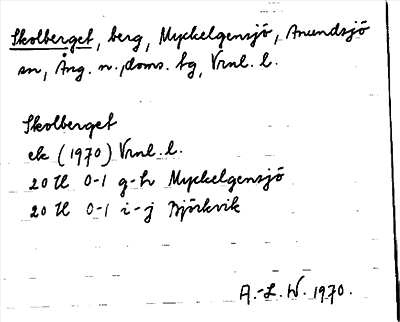 Skolberget, berg, Myckelgensjö, Anundsjö
sn, Ång. n., doms. tg, Vrnl. l.
Skolberget
ek (1970) Vrnl. l.
20 H 0-1 g-h Myckelgensjö
20 H 0-1 i-j Björkvik
A.-L. W. 1970.